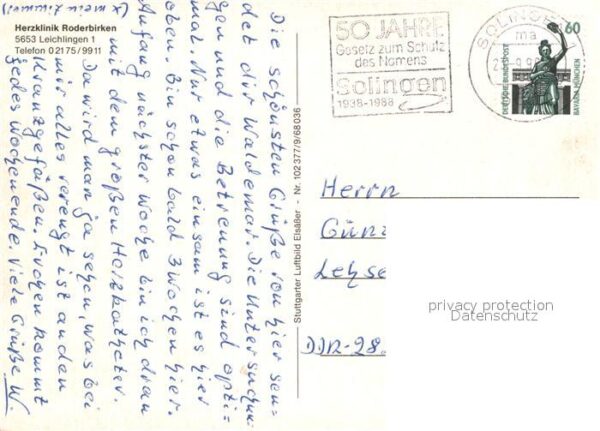 Herzklinik Roderbirken
5653 Leichlingen 1
Telefon 02175/9911
(x mein Zimmer)
Die schönsten Grüße von hier sen-
det dir Waldemar. Die Untersuchun-
gen und die Betreuung sind opti-
mal. Nur etwas einsam ist es hier
oben. Bin schon bald 3 Wochen hier.
Anfang nächster Woche bin ich dran
mit dem großen Herzkatheter.
Da wird man ja sehen, was bei
mir alles verengt ist an den
Kranzgefäßen. Evchen kommt
jedes Wochenende. Viele Grüße W.
Stuttgarter Luftbild Elsäßer - Nr. 102377/9/68036
50 JAHRE
Gesetz zum Schutz
des Namens
Solingen
1938-1988
SOLINGEN
ma
60
DEUTSCHE BUNDESPOST
BAVARIA MÜNCHEN
Herrn
Günt
DDR-28
privacy protection
Datenschutz